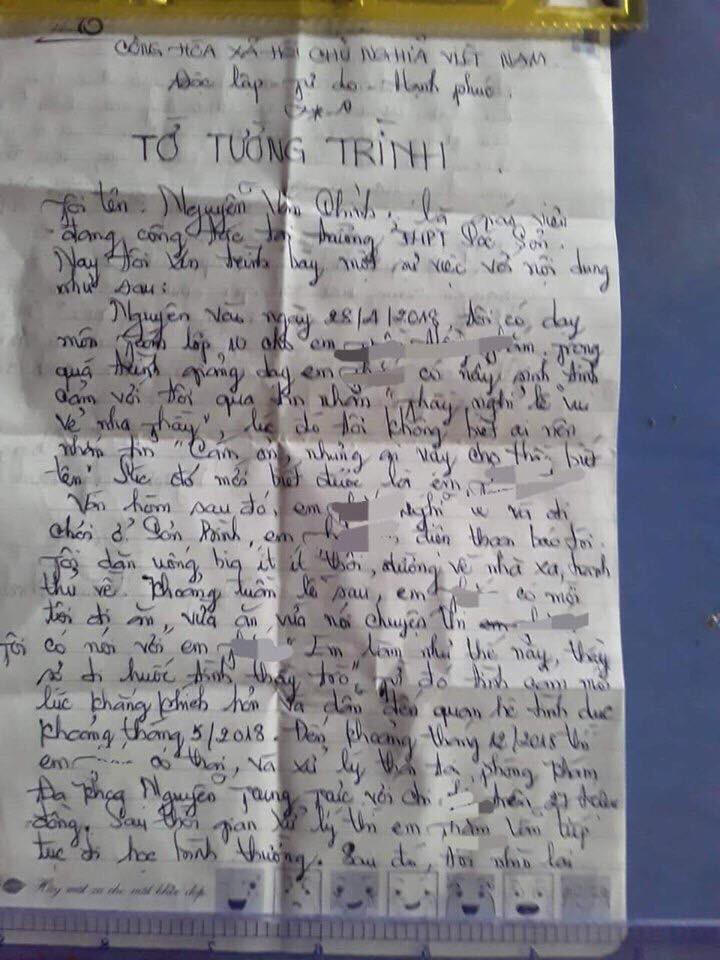 CỘNG HÒA XÃ HỘI CHỦ NGHĨA VIỆT NAM
Độc lập - Tự do - Hạnh phúc.
TỜ TƯỜNG TRÌNH
Tôi tên: Nguyễn Văn Chình, là giáo viên
đang công tác tại trường THPT
Nay tôi xin trình bày một sự việc với nội dung
như sau:
Nguyên vào ngày 28/1/2018, tôi có dạy
môn Toán lớp 10 cho em trong
quá trình giảng dạy em có nảy sinh tình
cảm với tôi qua tin nhắn "thầy nghỉ lễ vu
về nhà thầy", lúc đó tôi không biết ai nên
nhắn tin "Cảm ơn, nhưng ai vậy cho thầy biết
tên" lúc đó mới biết được là em
Vào hôm sau đó, em nghỉ và đi
chơi ở em điện thoại báo tôi.
Tôi dặn uống ít ít thôi, đường về nhà xa, tranh
thủ về. Khoảng tuần lễ sau, em có mời
tôi đi ăn, vừa ăn vừa nói chuyện thì
Tôi có nói với em "Em làm như thế này, thầy
sợ đi bước tình thầy trò" từ đó tình cảm mỗi
lúc khăng khít hơn và dẫn đến quan hệ tình dục
khoảng tháng 5/2018. Đến khoảng tháng 12/2018 thì
em có thai, và xử lý thai tại phòng khám
Đa khoa Nguyễn Trung Trực với chi trên 27 triệu
đồng. Sau thời gian xử lý thì em tiếp
tục đi học bình thường. Sau đó, tôi nhờ lại
Hãy một